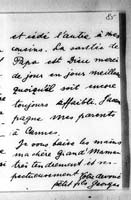 85
et édi l'autre à mes
cousins. La santé de
Papa est Dieu merci
de jour en jour meilleure
quoiqu'il soit encore
toujours affaibli.
pagne mes parents
à Cannes.
Je vous baise les mains
ma chère Grand'Maman
très tendrement et res-
pectueusement Votre dévoué
petit fils Georges